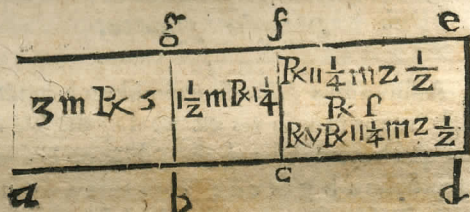 g f e
3 m ℞ 5
1 1/2 m ℞ 1 1/4
℞ 11 1/4 m 2 1/2
℞ f
℞ v ℞ 11 1/4 m 2 1/2
a b c d